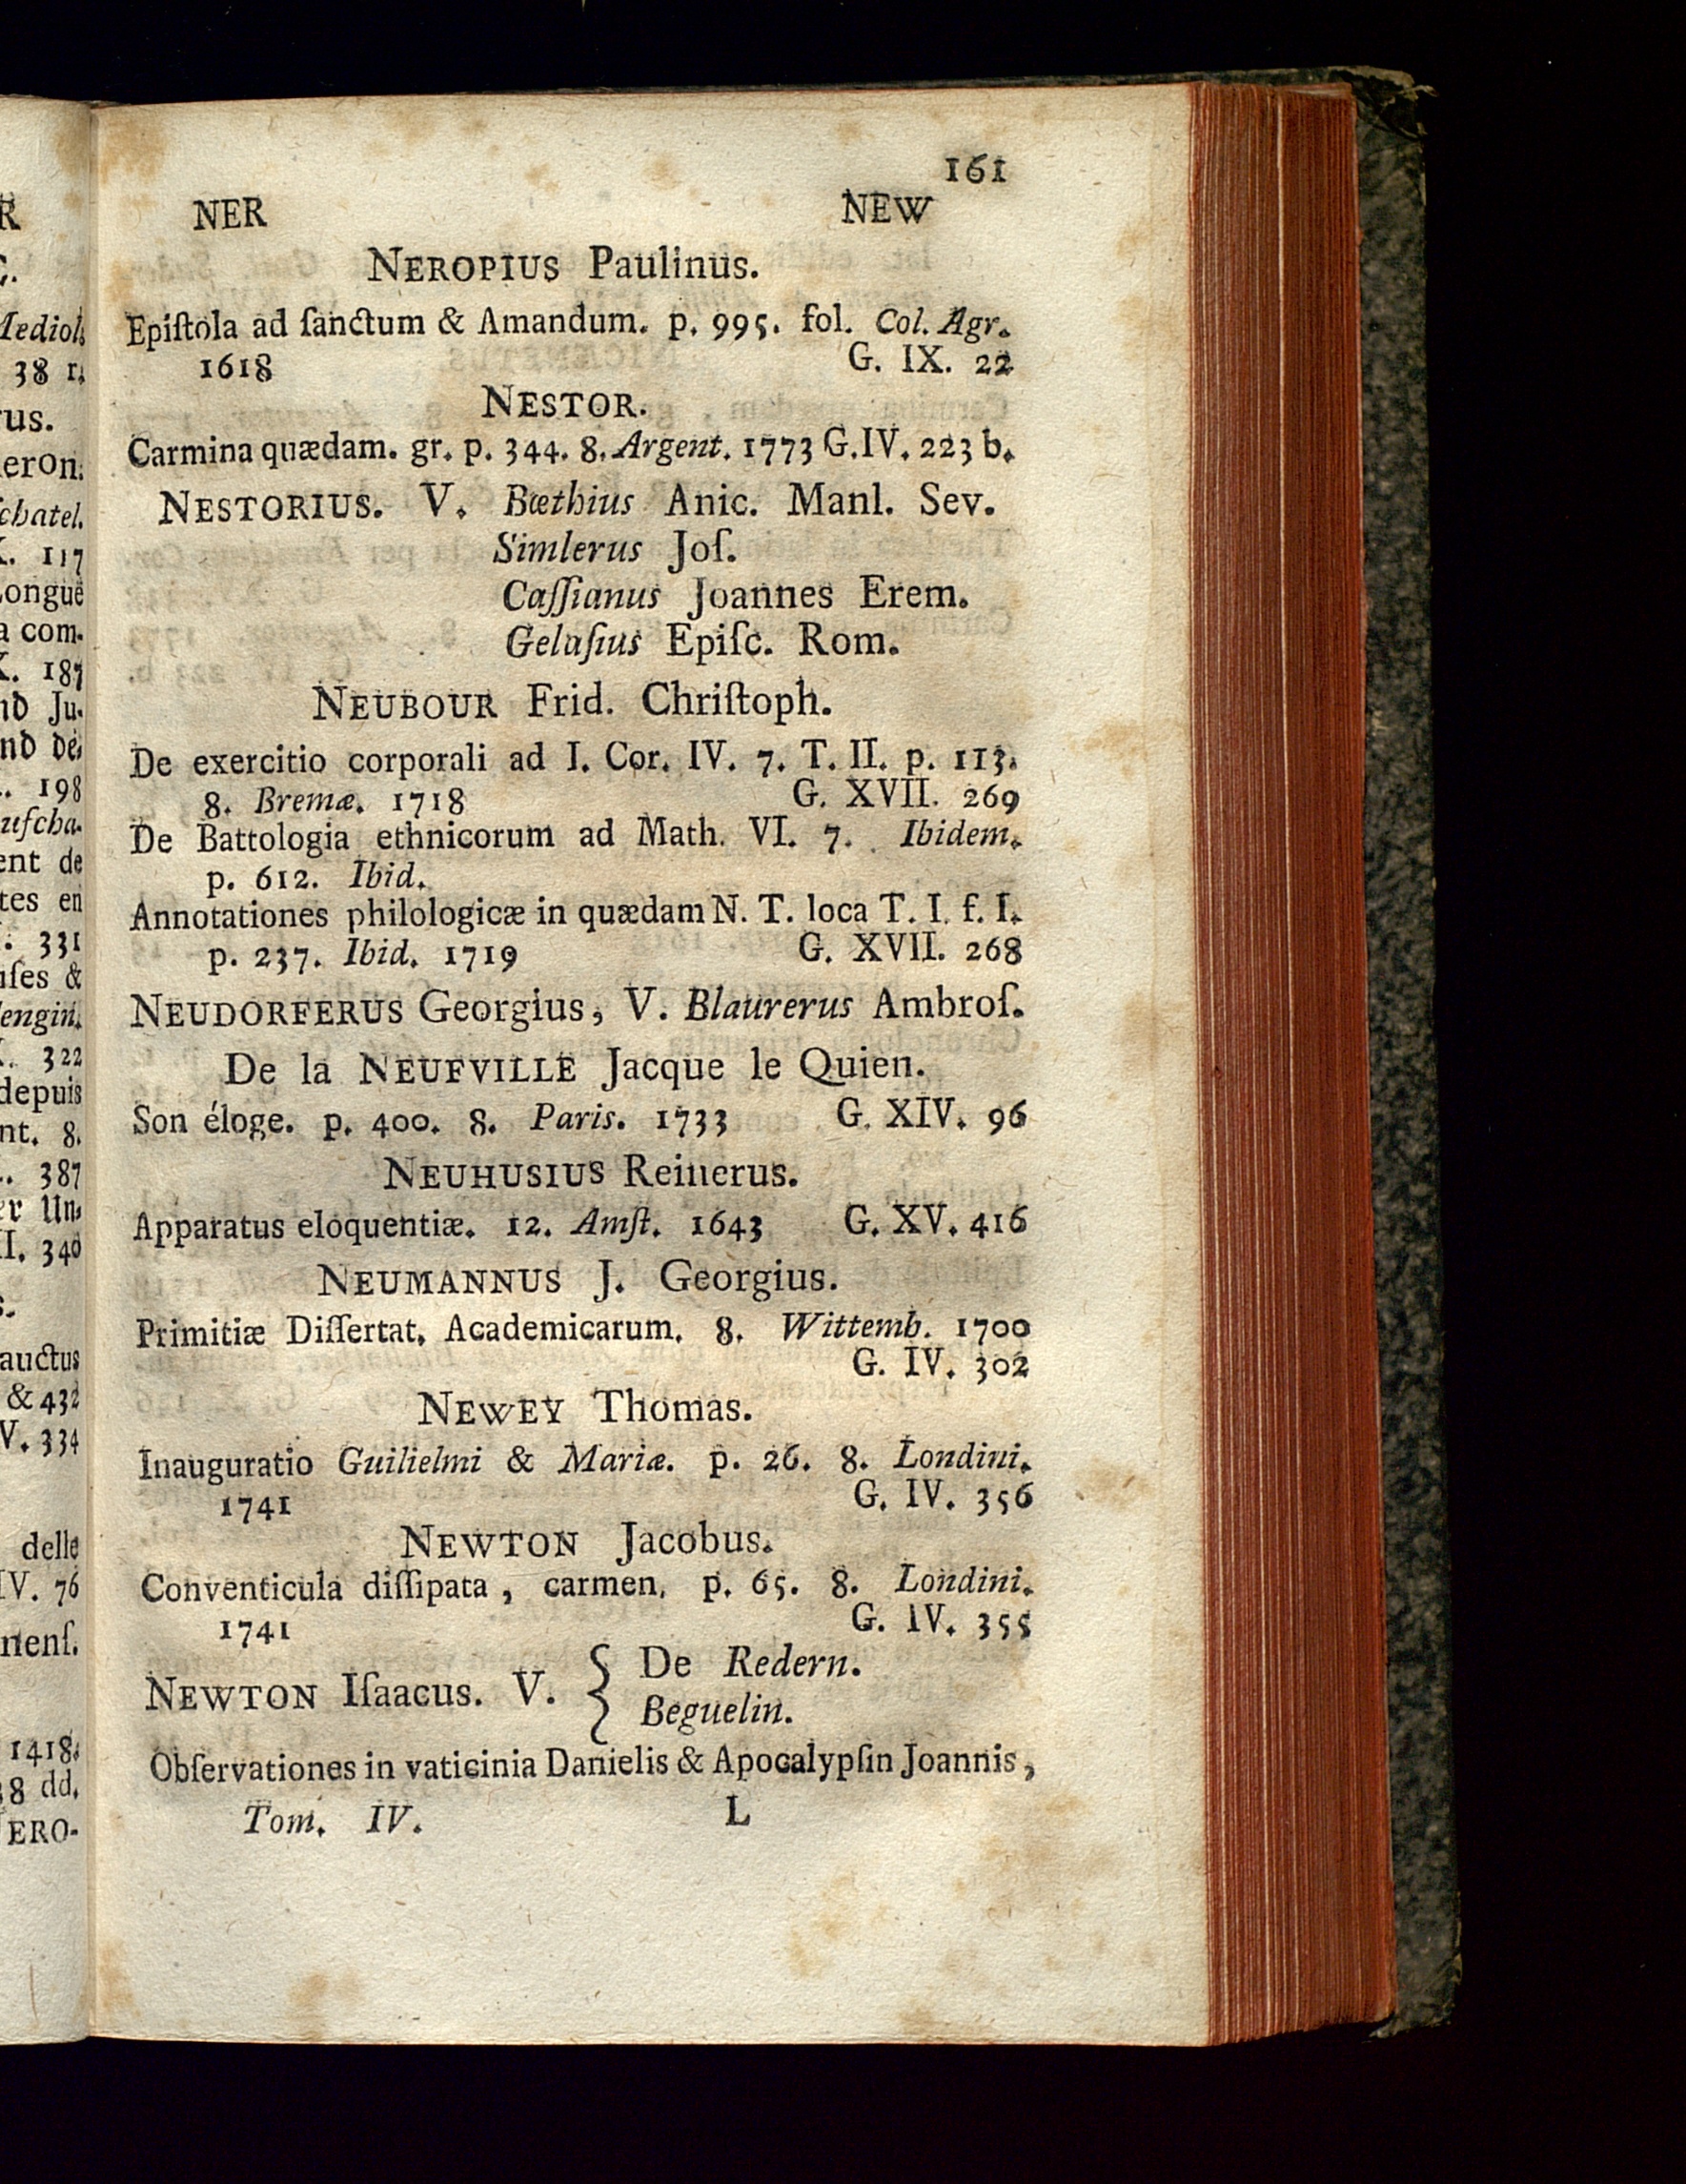 161
NER NEW
NEROPIUS Paulinus.
Epiſtola ad ſanctum & Amandum. p. 995. fol. Col. Agr.
1618 G. IX. 22
NESTOR.
Carmina quædam. gr. p. 344. 8. Argent. 1773 G. IV. 223 b.
NESTORIUS. V. Bœthius Anic. Manl. Sev.
Simlerus Joſ.
Caſſianus Joannes Erem.
Gelaſius Epiſc. Rom.
NEUBOUR Frid. Chriſtoph.
De exercitio corporali ad I. Cor. IV. 7. T. II. p. 113.
8. Bremæ. 1718 G. XVII. 269
De Battologia ethnicorum ad Math. VI. 7. Ibidem.
p. 612. Ibid.
Annotationes philologicæ in quædam N. T. loca T. I. f. I.
p. 237. Ibid. 1719 G. XVII. 268
NEUDORFERUS Georgius, V. Blaurerus Ambroſ.
De la NEUFVILLE Jacque le Quien.
Son éloge. p. 400. 8. Paris. 1733 G. XIV. 96
NEUHUSIUS Reinerus.
Apparatus eloquentiæ. 12. Amſt. 1643 G. XV. 416
NEUMANNUS J. Georgius.
Primitiæ Diſſertat. Academicarum. 8. Wittemb. 1700
G. IV. 302
NEWEY Thomas.
Inauguratio Guilielmi & Mariæ. p. 26. 8. Londini.
1741 G. IV. 356
NEWTON Jacobus.
Conventicula diſſipata, carmen. p. 65. 8. Londini.
1741 G. IV. 355
NEWTON Iſaacus. V. { De Redern.
Beguelin.
Obſervationes in vaticinia Danielis & Apocalypſin Joannis,
Tom. IV. L